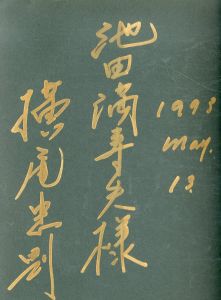 池田満寿夫様
横尾忠則
1993
May.
13.